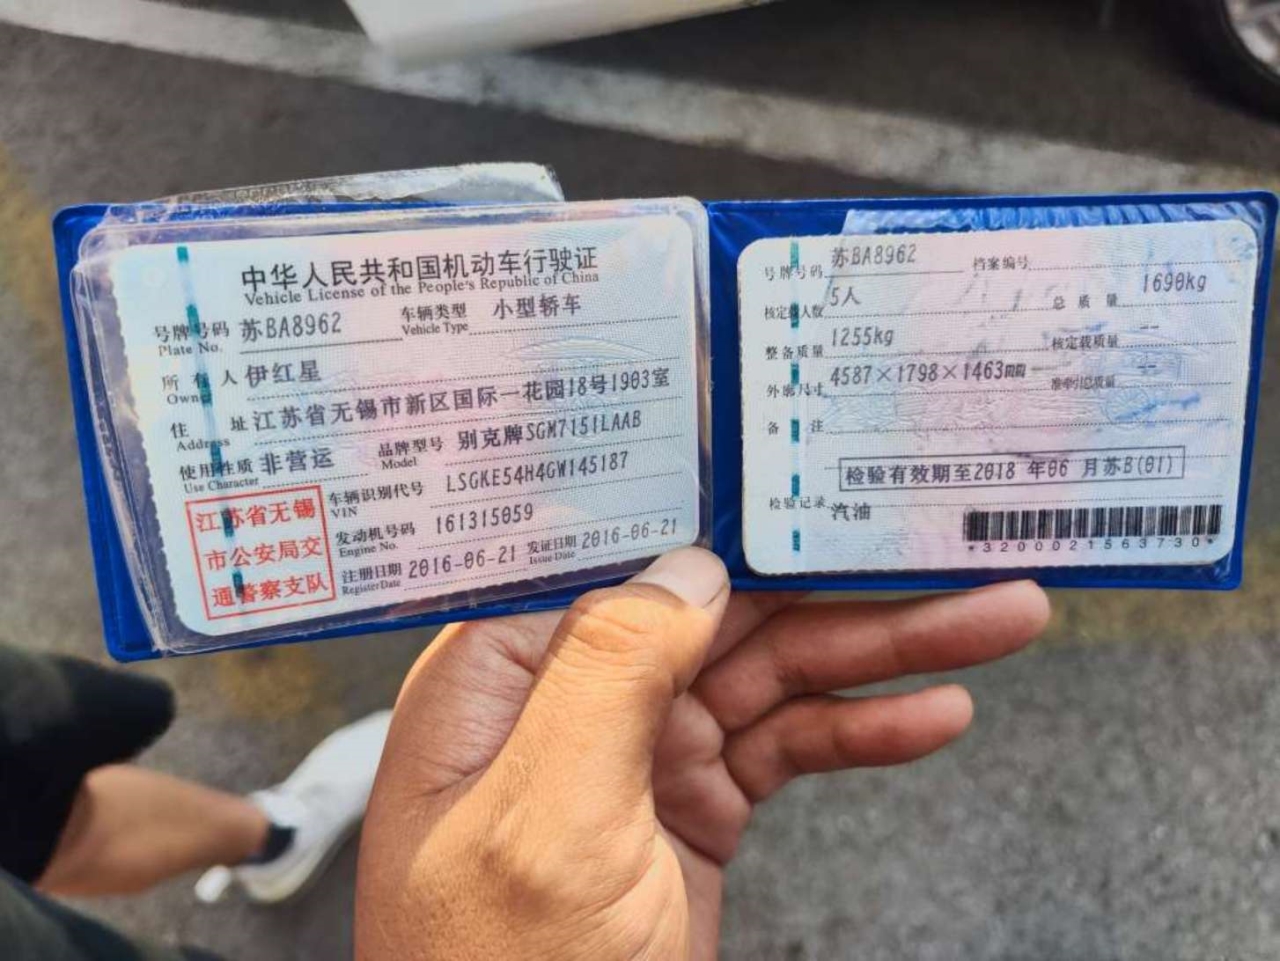 中华人民共和国机动车行驶证
Vehicle License of the People's Republic of China
号牌号码 苏BA8962 车辆类型 小型轿车
Plate No. Vehicle Type
所有人 伊红星
Owner
住址 江苏省无锡市新区国际一花园18号1903室
Address
使用性质 非营运 品牌型号 别克牌SGM7151LAAB
Use Character Model
车辆识别代号 LSGKE54H4GW145187
VIN
发动机号码 161315059
Engine No.
注册日期 2016-06-21 发证日期 2016-06-21
Register Date Issue Date
江苏省无锡
市公安局交
通警察支队
号牌号码 苏BA8962 档案编号
核定载人数 5人 总质量 1690kg
整备质量 1255kg 核定载质量 --
外廓尺寸 4587×1798×1463mm 准牵引总质量 --
备注
检验有效期至2018 年06 月苏B(01)
检验记录
汽油
*3200021563730*